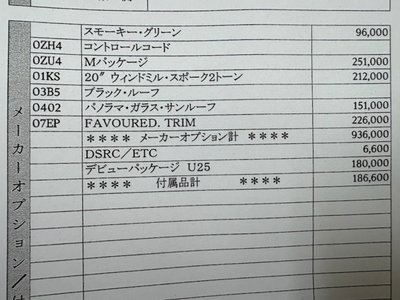 スモーキー・グリーン 96,000
0ZH4 コントロールコード
0ZU4 Mパッケージ 251,000
01KS 20″ ウィンドミル・スポーク2トーン 212,000
03B5 ブラック・ルーフ
0402 パノラマ・ガラス・サンルーフ 151,000
07EP FAVOURED. TRIM 226,000
**** メーカーオプション計 **** 936,000
DSRC/ETC 6,600
デビューパッケージ U25 180,000
**** 付属品計 **** 186,600
メーカーオプション/